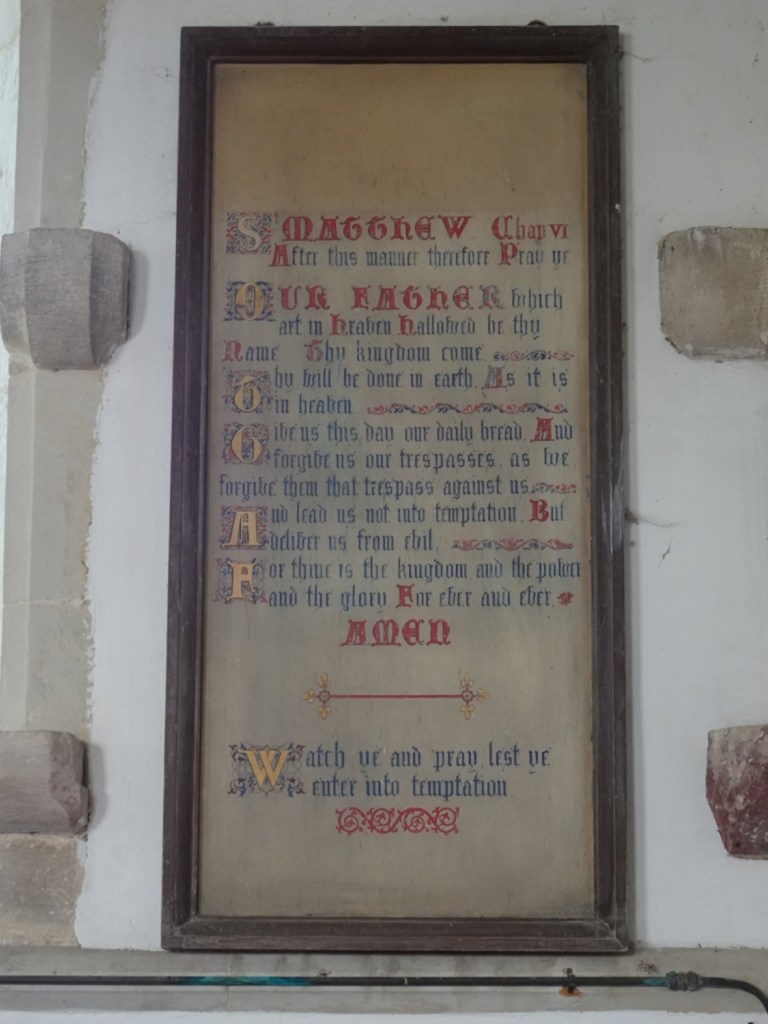 St MATTHEW Chap VI
After this manner therefore Pray ye
OUR FATHER Which
art in Heaven Hallowed be thy
Name. Thy kingdom come.
Thy will be done in earth, As it is
in heaven
Give us this day our daily bread. And
forgive us our trespasses, as we
forgive them that trespass against us.
And lead us not into temptation. But
deliver us from evil,
For thine is the kingdom and the power
and the glory For ever and ever.
AMEN
Watch ye and pray lest ye
enter into temptation